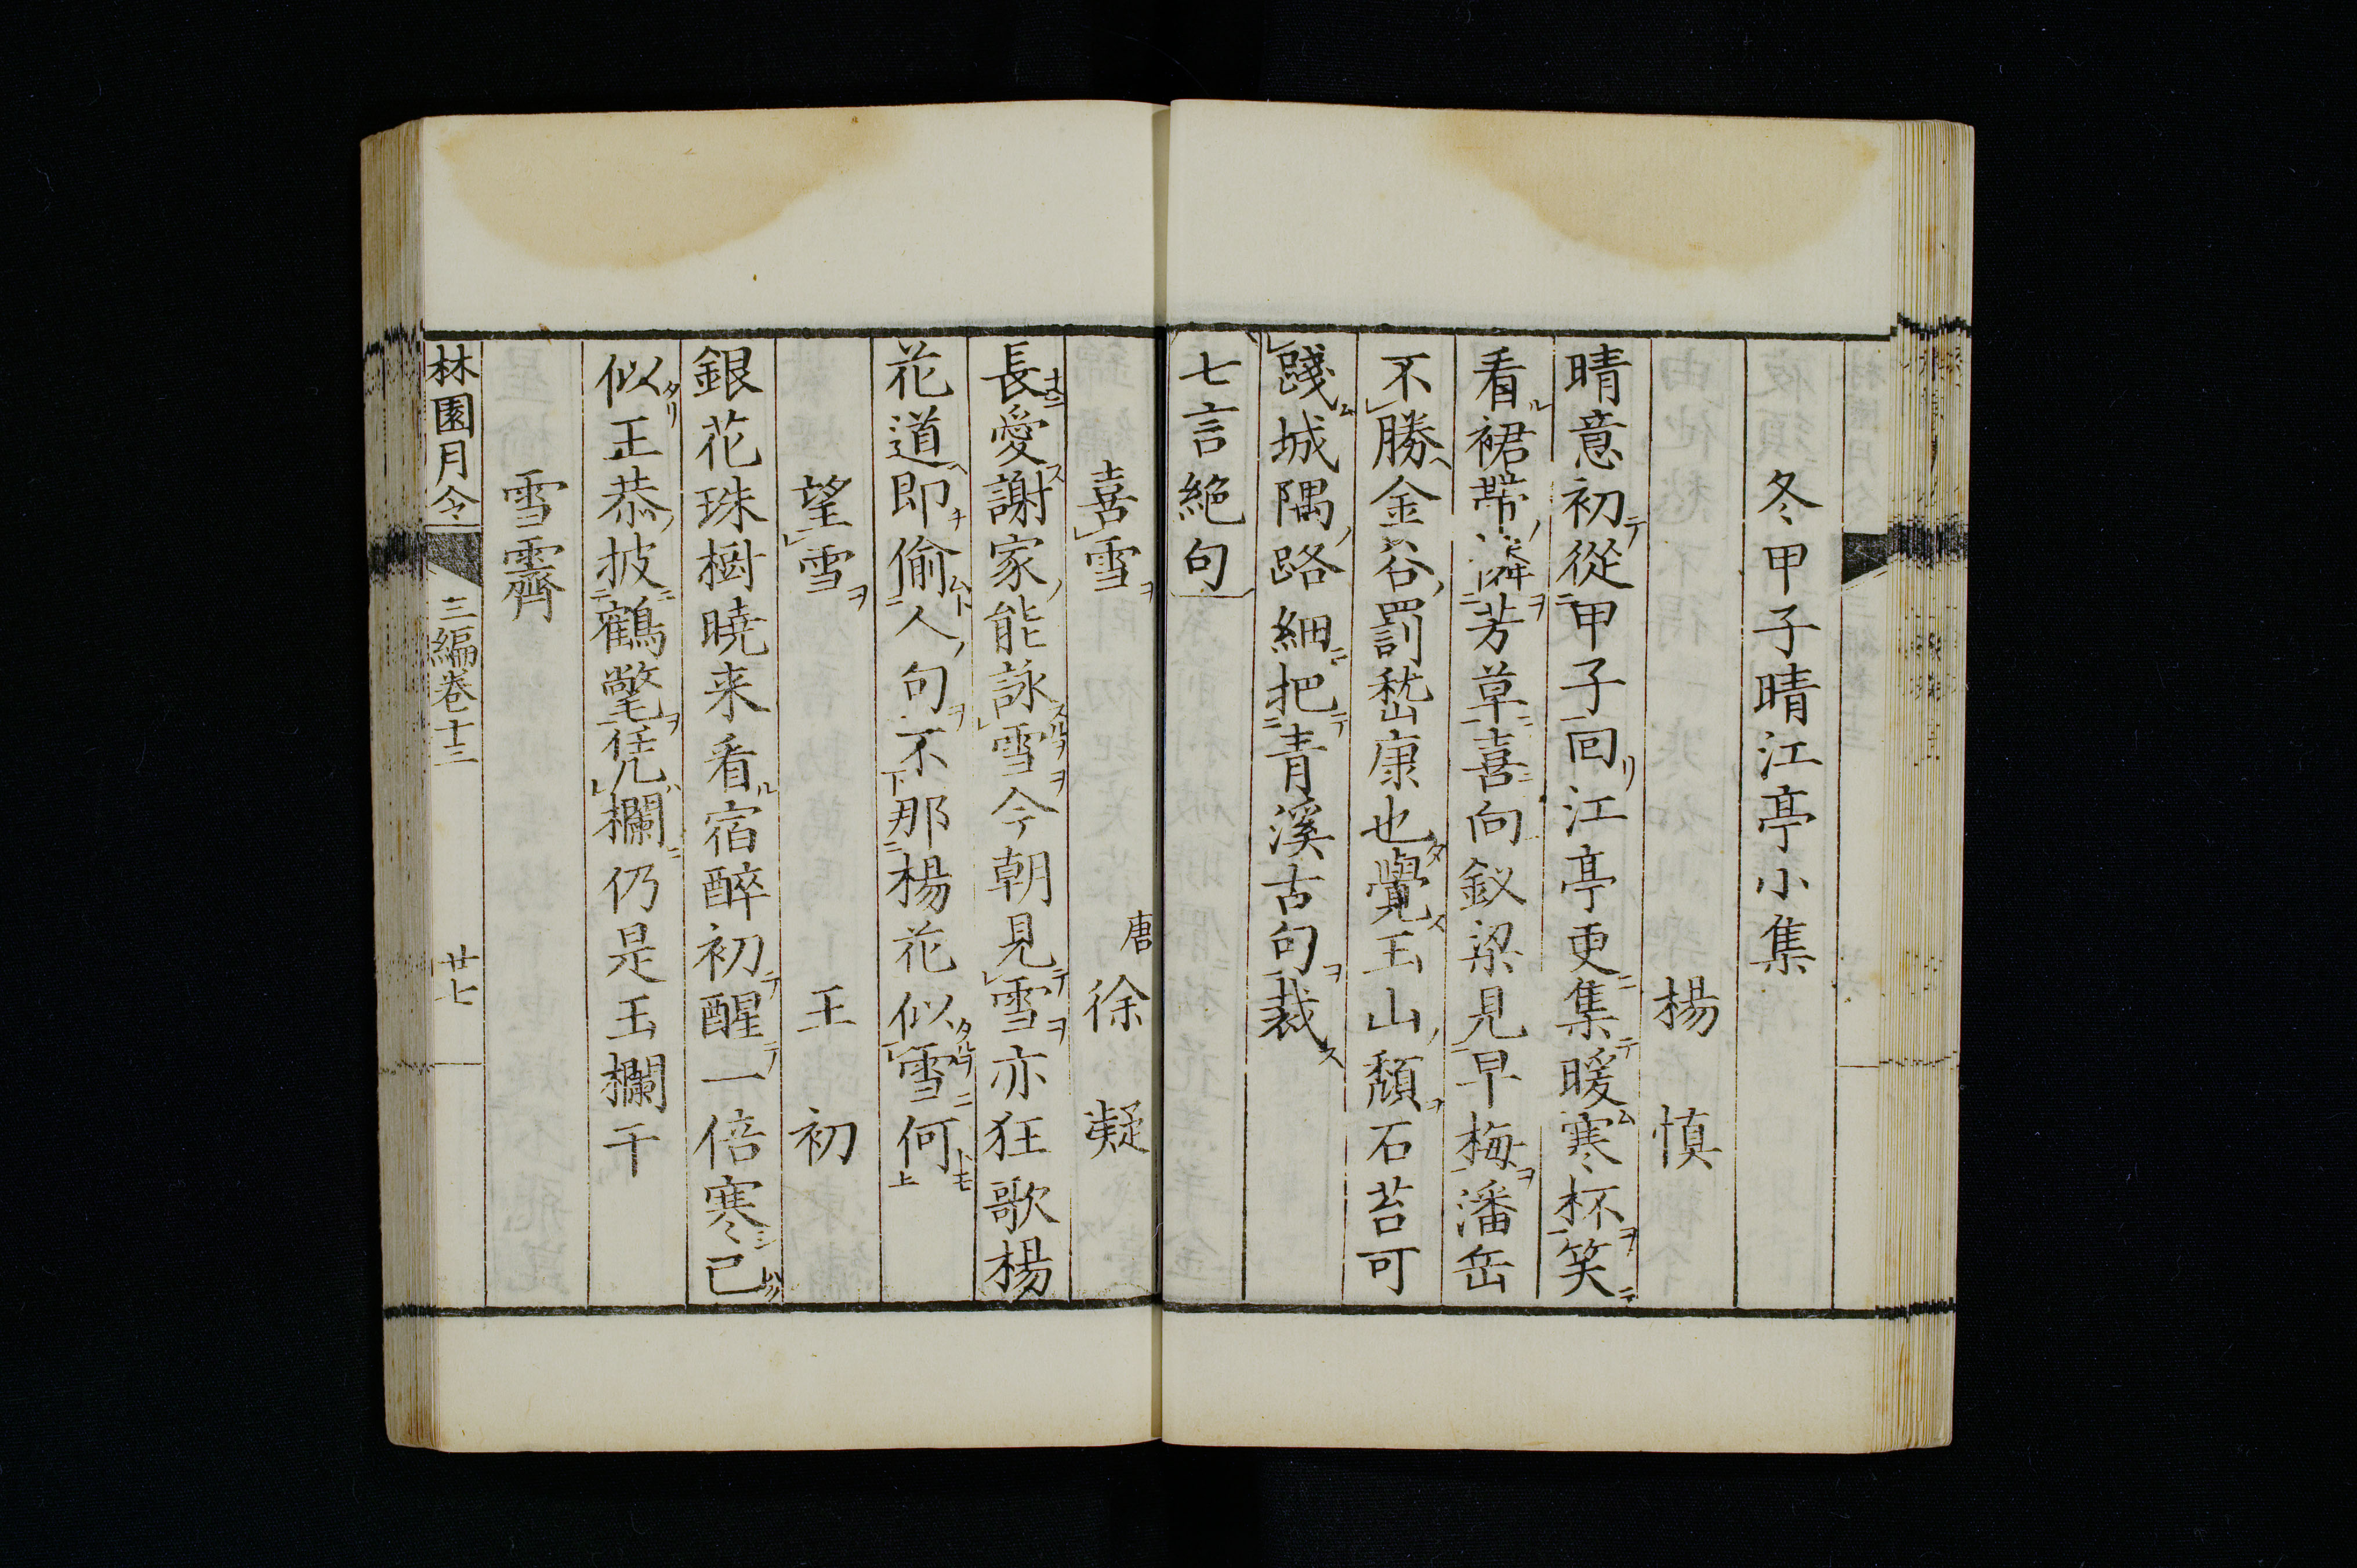 冬甲子晴江亭小集
楊慎
晴意初從甲子回江亭更集暖寒杯笑
看裙帶憐芳草喜向釵梁見早梅潘岳
不勝金谷罰嵇康也覺玉山頹石苔可
踐城隅路細把青溪古句裁
七言絶句
喜雪
唐 徐凝
長愛謝家能詠雪今朝見雪亦狂歌楊
花道即偷人句不那楊花似雪何
望雪
王初
銀花珠樹曉来看宿醉初醒一倍寒已
似王恭披鶴氅凭欄仍是玉欄干
雪霽
林園月令 三編卷十三 廿七